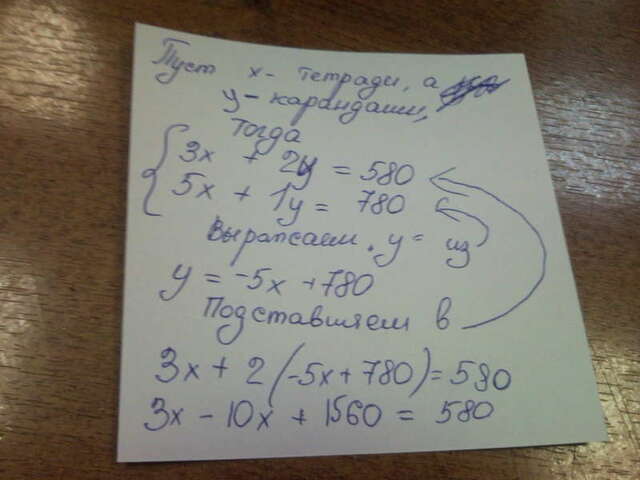 Пуст x - тетради, а
y - карандаши,
Тогда
3x + 2y = 580
5x + 1y = 780
Выражаем y = из
y = -5x + 780
Подставляем в
3x + 2(-5x + 780) = 580
3x - 10x + 1560 = 580